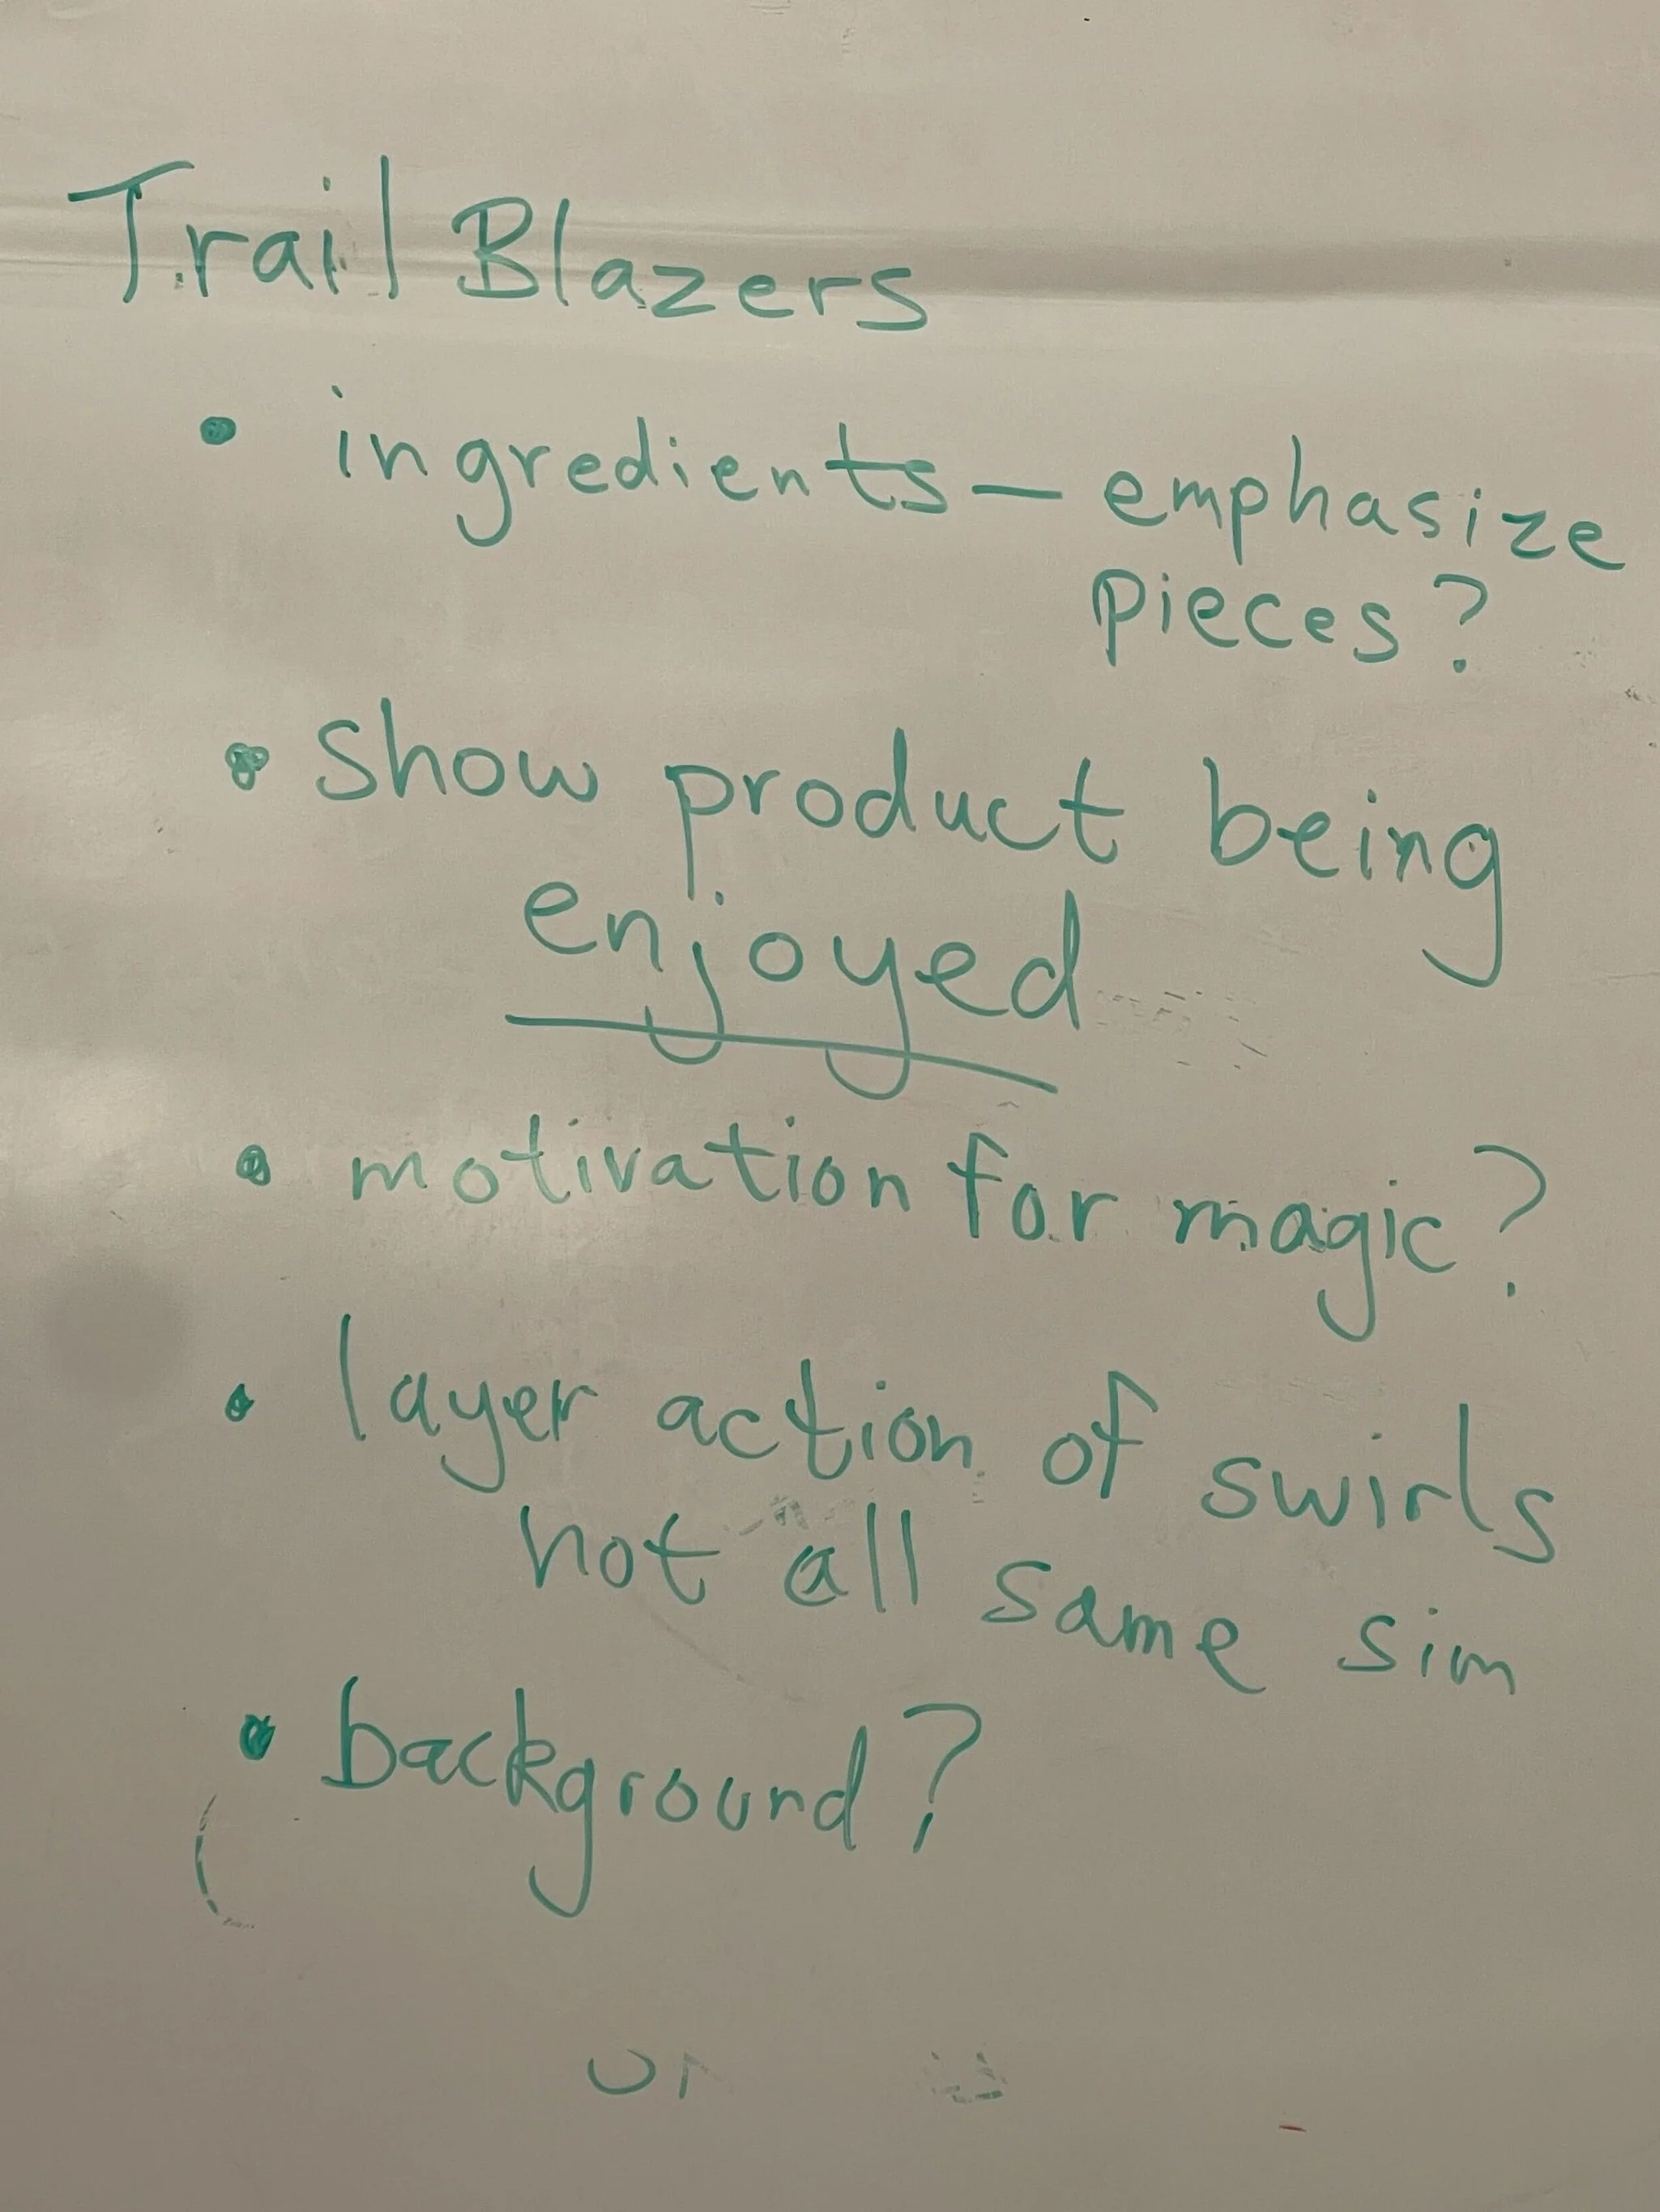 Trail Blazers
• ingredients — emphasize
pieces?
• show product being
enjoyed
• motivation for magic?
• layer action of swirls
not all same sim
• background?